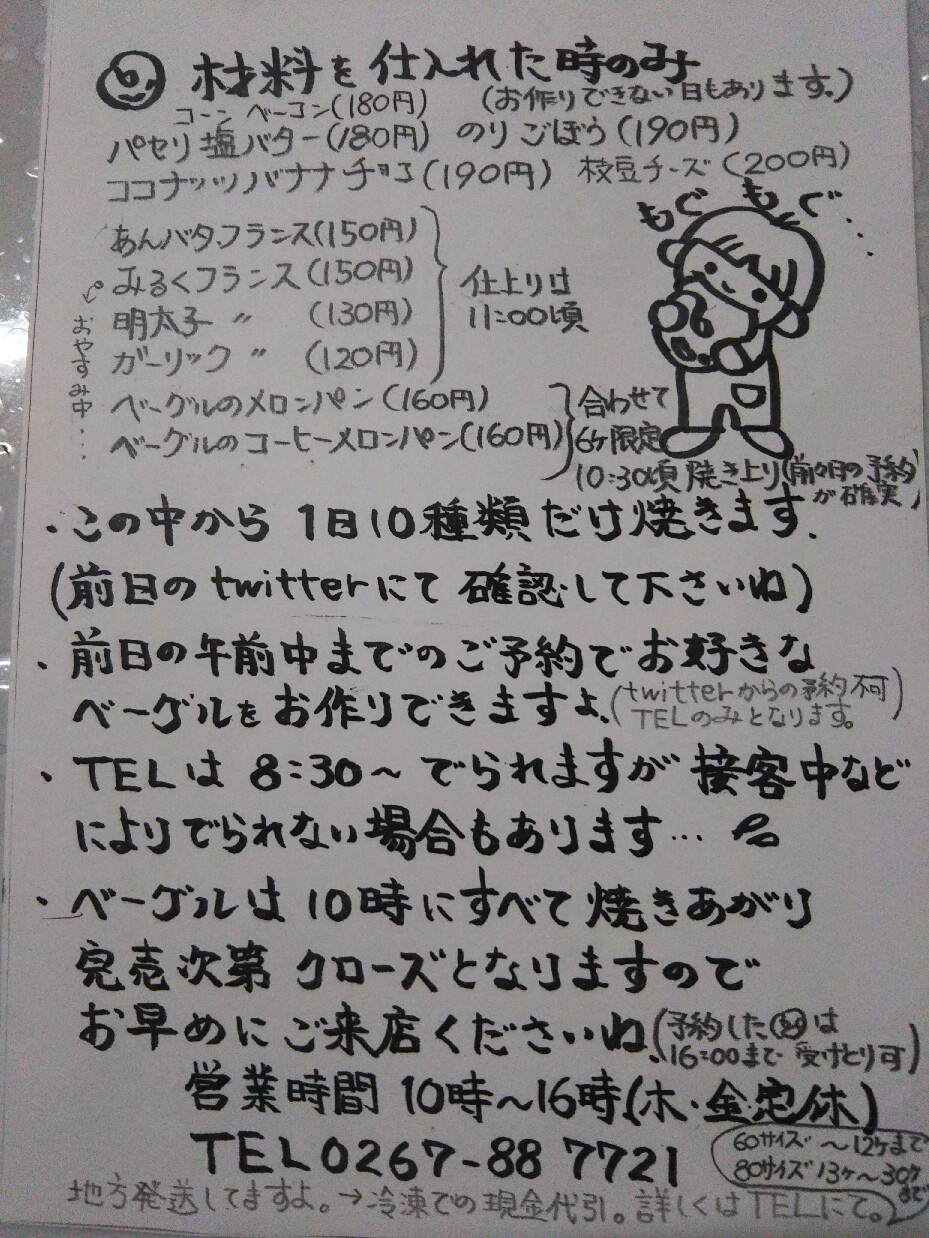 材料を仕入れた時のみ
コーン ベーコン(180円) (お作りできない日もあります。)
パセリ塩バター(180円) のりごぼう(190円)
ココナッツバナナチョコ(190円) 枝豆チーズ(200円)
もぐもぐ...
あんバタ.フランス(150円)
みるくフランス(150円)
明太子 〃 (130円)
ガーリック 〃 (120円)
仕上りは
11:00頃
おやすみ中...
ベーグルのメロンパン(160円)
ベーグルのコーヒーメロンパン(160円)
合わせて
6ヶ限定
10:30頃焼き上り(前々日の予約
が確実)
・この中から 1日10種類だけ焼きます.
(前日のtwitterにて 確認して下さいね)
・前日の午前中までのご予約でお好きな
ベーグルをお作りできますよ。(twitterからの予約不可
TELのみとなります。)
・TELは 8:30~でられますが 接客中など
によりでられない場合もあります…
・ベーグルは10時にすべて焼きあがり
完売次第 クローズとなりますので
お早めにご来店くださいね、(予約したは
16:00まで 受けとり可)
営業時間 10時~16時(木・金定休)
TEL0267-88 7721
60サイズ ~12ヶまで
80サイズ13ヶ~30ヶまで
地方発送してますよ。→冷凍での現金代引。詳しくはTELにて。